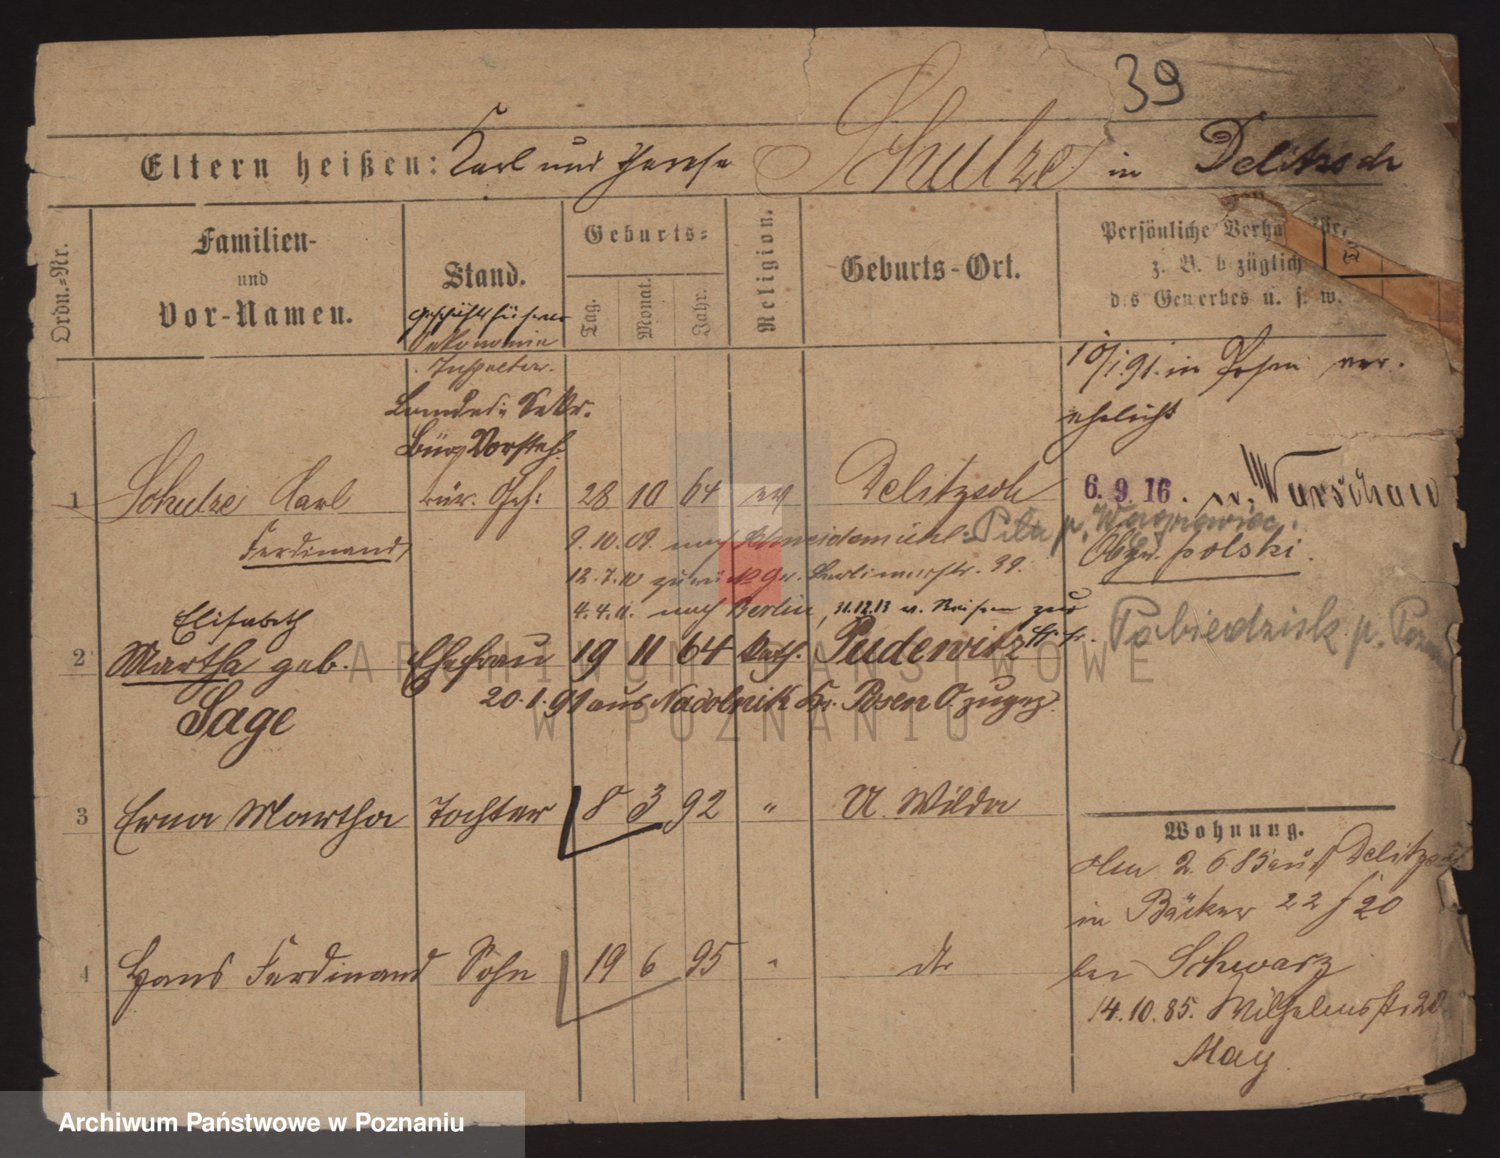 39
Eltern heißen: Karl und Therese Schulze in Delitzsch
Ordn.-Nr.
Familien-
und
Vor-Namen.
Stand.
Geburts-
Tag.
Monat.
Jahr.
Religion.
Geburts-Ort.
Persönliche
z. B. bezüglich
des Gewerbes u. s. w.
Geschäftsführer
Oekonomie
Inspector.
10/1.91. in Posen ver-
ehelicht
1 Schulze Karl
Ferdinand,
28 10 64 ev Delitzsch
6. 9. 16. Warschau
9.10.09. nach Schneidemühl
Piła p. Wągrowiec.
Obyw. polski.
12.7.10 zurück Gr. Berlinerstr. 39.
4.4.11. nach Berlin, 31.12.13 v. Reisen zur
2 Elisabeth
Martha geb.
Sage
Ehefrau 19 11 64 kath. Pudewitz
Pobiedzisk p. Pozn
20.1.91 aus Nadolnik Kr. Posen O. zugez.
3 Erna Martha Tochter 8 3 92 " U. Wilda
Wohnung.
2.6.85 aus Delitzsch
in Bäcker 22 20
4 Hans Ferdinand Sohn 19 6 95 " dto
bei Schwarz
14.10.85. Wilhelmsstr 28.
May
ARCHIWUM PAŃSTWOWE
W POZNANIU
Archiwum Państwowe w Poznaniu